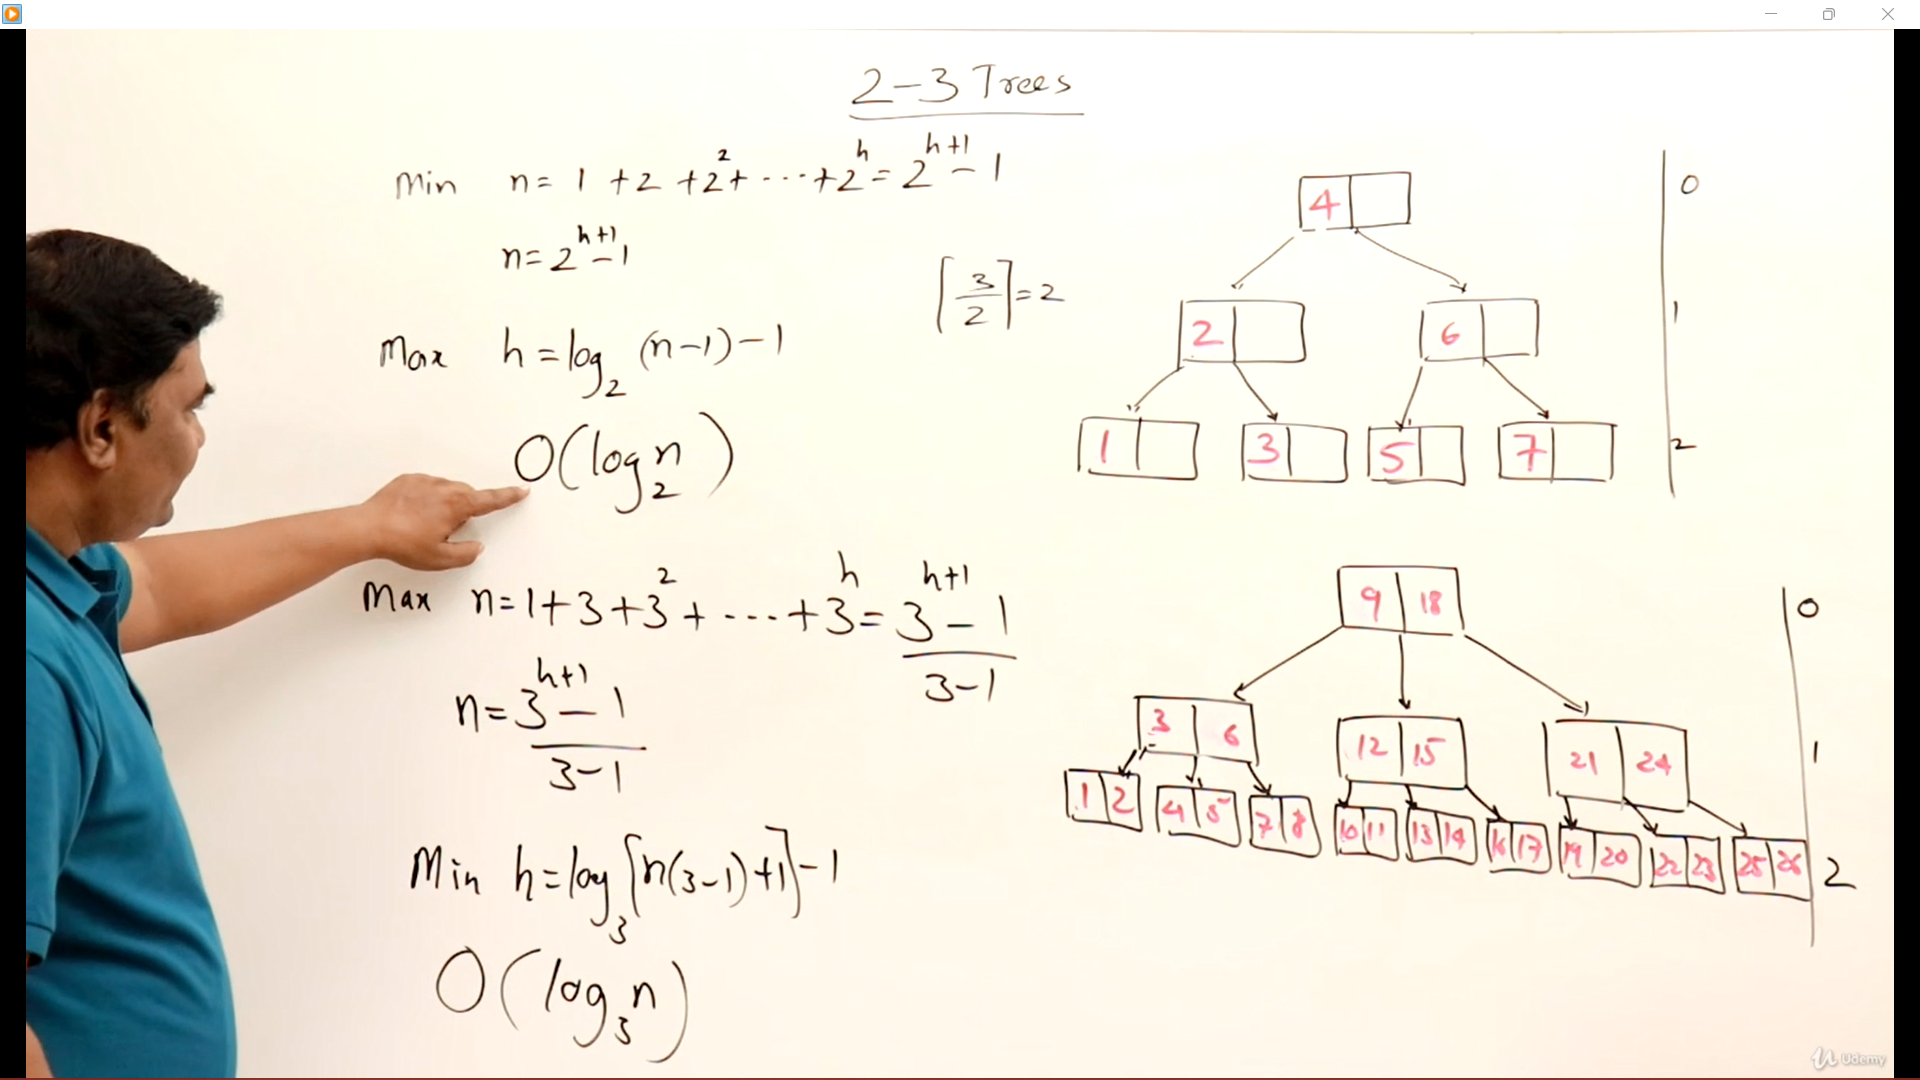 2-3 Trees
Min n = 1 + 2 + 2² + ... + 2ʰ = 2ʰ⁺¹ - 1
n = 2ʰ⁺¹ - 1
⌈3/2⌉ = 2
Max h = log₂ (n-1) - 1
O(log₂ n)
Max n = 1 + 3 + 3² + ... + 3ʰ = (3ʰ⁺¹ - 1)/(3-1)
n = (3ʰ⁺¹ - 1)/(3-1)
Min h = log₃ [n(3-1)+1] - 1
O(log₃ n)
4 0
2 6 1
1 3 5 7 2
9 18 0
3 6 12 15 21 24 1
1 2 4 5 7 8 10 11 13 14 16 17 19 20 22 23 25 26 2
Udemy